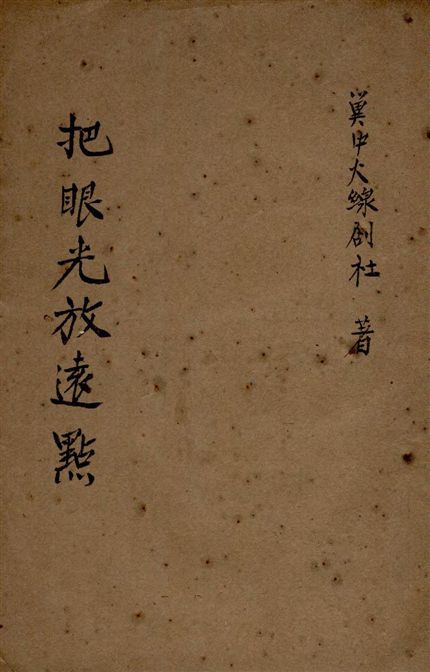 冀中火線剧社 著
把眼光放遠點